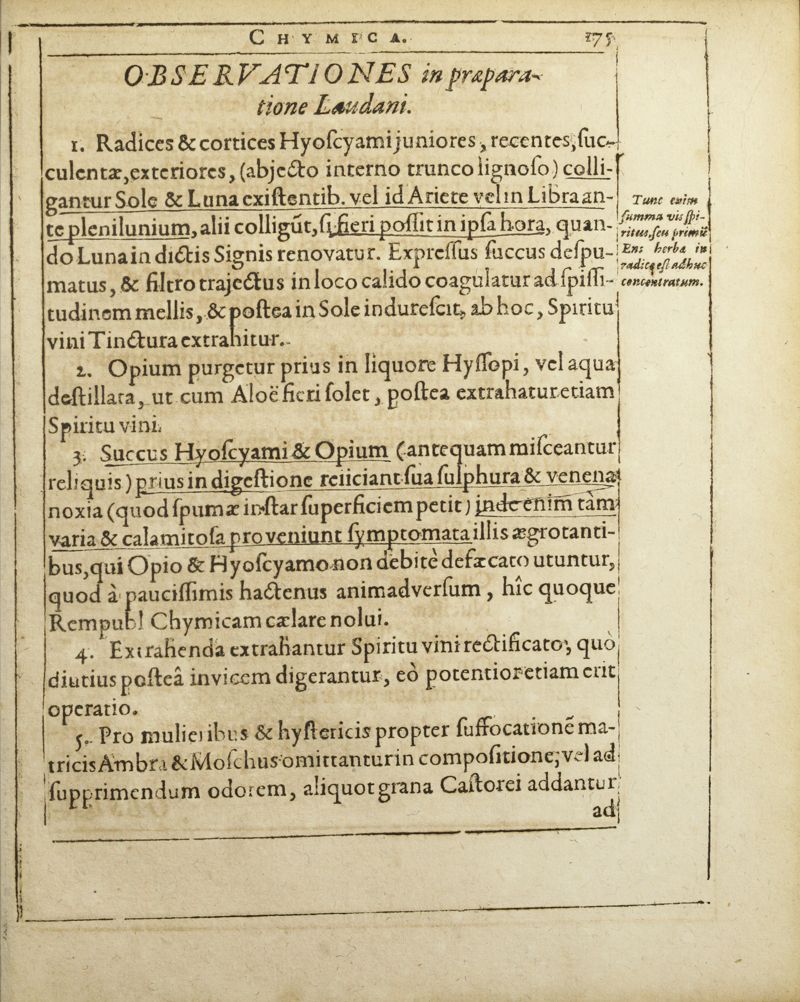 CHYMICA. 175
OBSERVATIONES in præpara-
tione Laudani.
1. Radices & cortices Hyoſcyami juniores, recentes, ſuc-
culentæ, exteriores, (abjecto interno trunco lignoſo) colli-
gantur Sole & Luna exiſtentib. vel id Ariete vel in Libra an-
te plenilunium, alii colligūt, ſi fieri poſſit in ipſa hora, quan-
do Luna in dictis Signis renovatur. Expreſſus ſuccus deſpu-
matus, & filtro trajectus in loco calido coagulatur ad ſpiſſi-
tudinem mellis, & poſtea in Sole indureſcit, ab hoc, Spiritu
vini Tinctura extrahitur.
Tunc enim
ſumma vis ſpi-
ritus, ſeu primū
Ens herbæ in
radice eſt adhuc
concentratum.
2. Opium purgetur prius in liquore Hyſſopi, vel aqua
deſtillata, ut cum Aloë fieri ſolet, poſtea extrahatur etiam
Spiritu vini.
3. Succus Hyoſcyami & Opium (antequam miſceantur
reliquis) prius in digeſtione reiiciant ſua ſulphura & venena
noxia (quod ſpumæ inſtar ſuperficiem petit) inde enim tàm
varia & calamitoſa proveniunt ſymptomata illis ægrotanti-
bus, qui Opio & Hyoſcyamo non debitè defæcato utuntur,
quod à pauciſſimis hactenus animadverſum, hîc quoque
Rempubl Chymicam cælare nolui.
4. Extrahenda extrahantur Spiritu vini rectificato, quò
diutius poſteâ invicem digerantur, eò potentior etiam erit
operatio.
5. Pro mulieribus & hyſtericis propter ſuffocationē ma-
tricis Ambra & Moſchus omittantur in compoſitione; vel ad
ſupprimendum odorem, aliquot grana Caſtorei addantur
ad